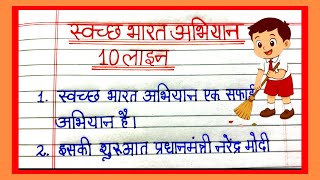 स्वच्छ भारत अभियान
10 लाइन
1. स्वच्छ भारत अभियान एक सफाई
अभियान है।
2. इसकी शुरुआत प्रधानमन्त्री नरेंद्र मोदी